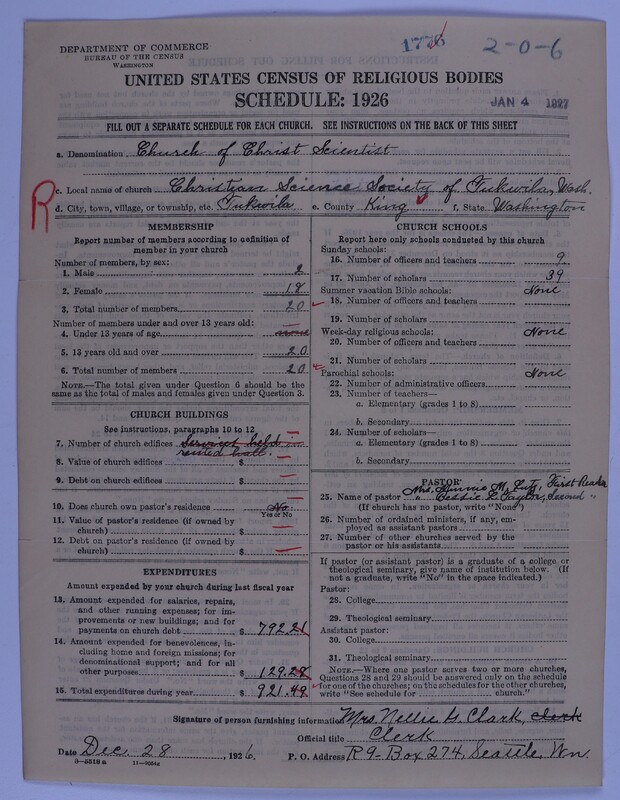 DEPARTMENT OF COMMERCE
BUREAU OF THE CENSUS
WASHINGTON
1776
2-0-6
UNITED STATES CENSUS OF RELIGIOUS BODIES
SCHEDULE: 1926
JAN 4 1927
FILL OUT A SEPARATE SCHEDULE FOR EACH CHURCH. SEE INSTRUCTIONS ON THE BACK OF THIS SHEET
a. Denomination Church of Christ Scientist
R
c. Local name of church Christian Science Society of Tukwila, Wash.
d. City, town, village, or township, etc. Tukwila e. County King f. State Washington
MEMBERSHIP
Report number of members according to definition of member in your church
Number of members, by sex:
1. Male 2
2. Female 18
3. Total number of members 20
Number of members under and over 13 years old:
4. Under 13 years of age none
5. 13 years old and over 20
6. Total number of members 20
NOTE.—The total given under Question 6 should be the
same as the total of males and females given under Question 3.
CHURCH BUILDINGS
See instructions, paragraphs 10 to 12
7. Number of church edifices Services held in
rented hall.
8. Value of church edifices $
9. Debt on church edifices $
10. Does church own pastor's residence No
Yes or No
11. Value of pastor's residence (if owned by
church) $
12. Debt on pastor's residence (if owned by
church) $
EXPENDITURES
Amount expended by your church during last fiscal year
13. Amount expended for salaries, repairs,
and other running expenses; for im-
provements or new buildings; and for
payments on church debt $ 792.21
14. Amount expended for benevolences, in-
cluding home and foreign missions; for
denominational support; and for all
other purposes $ 129.28
15. Total expenditures during year $ 921.49
CHURCH SCHOOLS
Report here only schools conducted by this church
Sunday schools:
16. Number of officers and teachers 9
17. Number of scholars 39
Summer vacation Bible schools: None
18. Number of officers and teachers
19. Number of scholars
Week-day religious schools: None
20. Number of officers and teachers
21. Number of scholars
Parochial schools: None
22. Number of administrative officers
23. Number of teachers—
a. Elementary (grades 1 to 8)
b. Secondary
24. Number of scholars—
a. Elementary (grades 1 to 8)
b. Secondary
PASTOR
Mrs. Minnie M. Lutz, First Reader
25. Name of pastor Bessie L. Taylor, Second "
(If church has no pastor, write "None")
26. Number of ordained ministers, if any, em-
ployed as assistant pastors
27. Number of other churches served by the
pastor or his assistants
If pastor (or assistant pastor) is a graduate of a college or
theological seminary, give name of institution below. (If
not a graduate, write "No" in the space indicated.)
Pastor:
28. College
29. Theological seminary
Assistant pastor:
30. College
31. Theological seminary
NOTE.—Where one pastor serves two or more churches,
Questions 28 and 29 should be answered only on the schedule
for one of the churches; on the schedules for the other churches,
write "See schedule for church."
Signature of person furnishing information Mrs. Nellie G. Clark, clerk
Official title Clerk
Date Dec. 28, 1926. P. O. Address R 9-Box 274, Seattle, Wn.